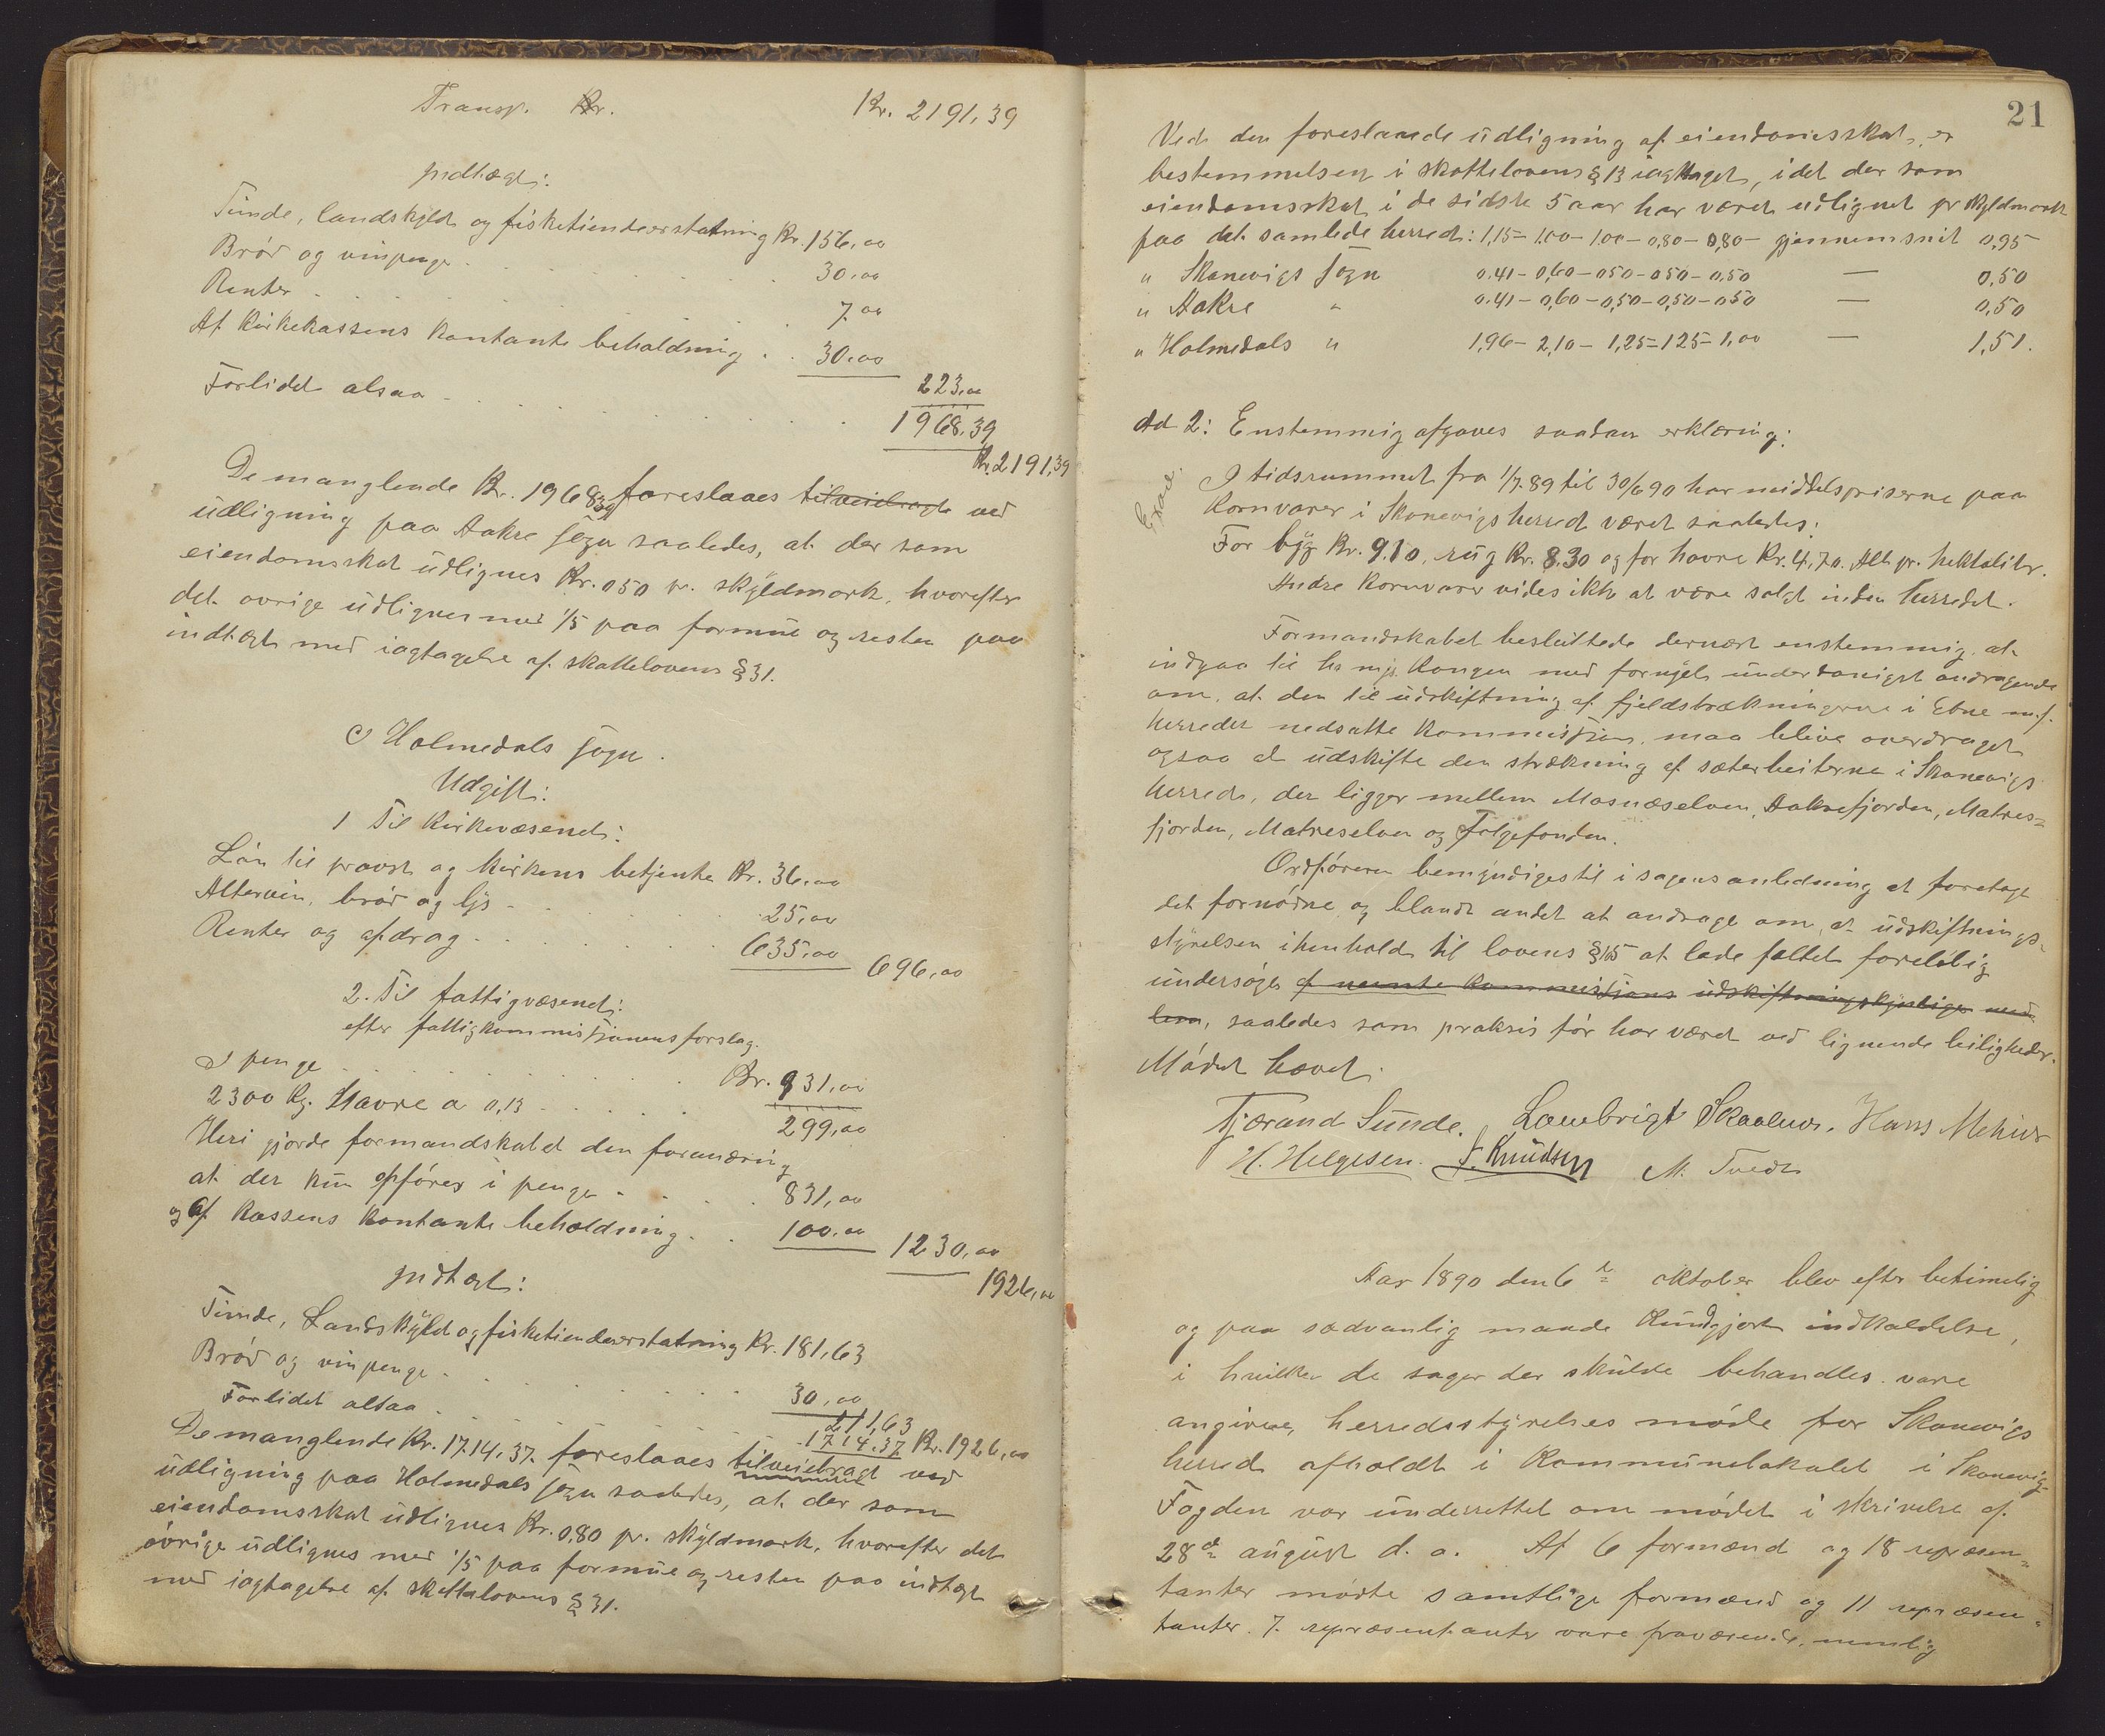 Transp. Kr. Kr. 2191,39
Indtægt:
Tiende, landskyld og fisketiendeerstatning Kr. 156,00
Brød og vinpenge . . . . 30,00
Renter . . . . 7,00
Af Kirkekassens kontante beholdning . . 30,00
223,00
Forlidet alsaa . . . . 1968,39
Kr. 2191,39
De manglende Kr. 1968,39 foreslaaes tilveiebragt ved
udligning paa Aakre sogn saaledes, at der som
eiendomsskat udlignes Kr. 0,50 pr. skyldmark, hvorefter
det øvrige udlignes med 1/5 paa formue og resten paa
indtægt med iagtagelse af skattelovens § 31.
I Holmedals sogn.
Udgift:
1 Til Kirkevæsenet:
Løn til provst og kirkens betjente Kr. 36,00
Altervin, brød og lys . . . . 25,00
Renter og afdrag . . . . 635,00 696,00
2. Til fattigvæsenet:
efter fattigkommissjonens forslag.
I penge . . . . Kr. 931,00
2300 Kg. Havre a 0,13 . . . . 299,00
Heri gjorde formandskabet den forandring
at der kun opføres i penge . . . . 831,00
og af Kassens kontante beholdning . . 100,00 1230,00
1926,00
Indtægt:
Tiende, Landskyld og fisketiendeerstatning Kr. 181,63
Brød og vinpenge . . . . 30,00
211,63
Forlidet altsaa . . . . 1714,37 Kr. 1926,00
De manglende Kr. 1714,37. foreslaaes tilveiebragt ved
udligning paa Holmedals sogn saaledes, at der som
eiendomsskat udlignes Kr. 0,80 pr. skyldmark, hvorefter det
øvrige udlignes med 1/5 paa formue og resten paa indtægt
med iagtagelse af skattelovens § 31.
21
Ved den foreslaaede udligning af eiendomsskat, er
bestemmelsen i skattelovens § 13 iagttaget, idet der som
eiendomsskat i de sidste 5 aar har været udlignet pr skyldmark
paa det samlede herred: 1,15 - 1,00 - 1,00 - 0,80 - 0,80 - gjennemsnit 0,95
" Skonevigs sogn 0,41 - 0,60 - 0,50 - 0,50 - 0,50 — 0,50
" Aakre " 0,41 - 0,60 - 0,50 - 0,50 - 0,50 — 0,50
" Holmedals " 1,96 - 2,10 - 1,25 - 1,25 - 1,00 — 1,51.
Ad 2: Enstemmig afgaves saadan erklæring:
I tidsrummet fra 1/7.89 til 30/6 90 har middelspriserne paa
Kornvarer i Skonevigs herred været saaledes:
For byg Kr. 9.10, rug Kr. 8.30 og for havre Kr. 4,70. Alt pr. hektoliter.
Andre Kornvarer vides ikke at være solgt inden herredet.
Formandskabet besluttede dernæst enstemmig, at
indgaa til hs maj. Kongen med fornyet underdanigst andragende
om, at den til udskiftning af fjeldstrækningerne i Etne m.f.
herreder nedsatte kommissjon, maa blive overdraget
ogsaa at udskifte den strækning af sæterheiterne i Skonevigs
herred, der ligger mellem Mosnæselven, Aakrefjorden, Matres=
fjorden, Matreselven og Folgefonden.
Ordføreren bemyndiges til i sagens anledning at foretage
det fornødne og blandt andet at andrage om, at udskiftnings-
styrelsen i henhold til lovens § 105 at lade feltet foreløbig
undersøge af nevnte kommissjons udskiftningskyndige med
lem, saaledes som praksis før har været ved lignende leiligheder.
Mødet hævet.
Tjærand Sunde. Lambrigt Skaalnes. Hans Mehus
H. Helgesen. S. Knudsen M. Tvedt
Aar 1890 den 6te oktober blev efter betimelig
og paa sædvanlig maade kundgjort indkaldelse,
i hvilken de sager der skulde behandles vare
angivne, herredsstyrelses møde for Skonevigs
herred afholdt i Kommunelokalet i Skonevig
Fogden var underrettet om mødet i skrivelse af
28de august d. a. Af 6 formænd og 18 repræsen=
tanter mødte samtlige formænd og 11 repræsen=
tanter. 7 repræsentanter vare fraværende, nemlig